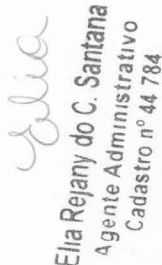 Elia
Elia Rejany do C. Santana
Agente Administrativo
Cadastro nº 44 784